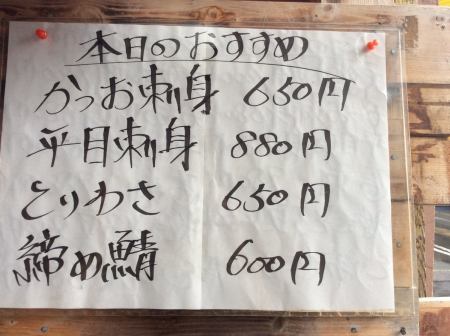 本日のおすすめ
かつお刺身 650円
平目刺身 880円
とりわさ 650円
締め鯖 600円